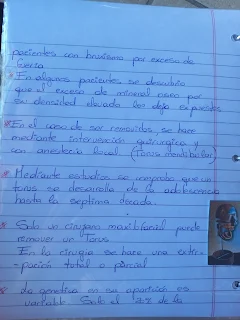 pacientes con bruxismo por exceso de
fuerza
En algunos pacientes se descubrio
que el exceso de mineral oseo por
su densidad elevada los deja expuestos
* En el caso de ser removidos, se hace
mediante intervención quirurgica y
con anestecia local (Torus mandibular)
* Mediante estudios se comprobo que un
torus se desarrolla de la adolescencia
hasta la septima decada.
* Solo un cirujano maxilofacial puede
remover un Torus
En la cirugia se hace una extir-
pación total o parcial
* La genetica en su aparicion es
variable. Solo el de la